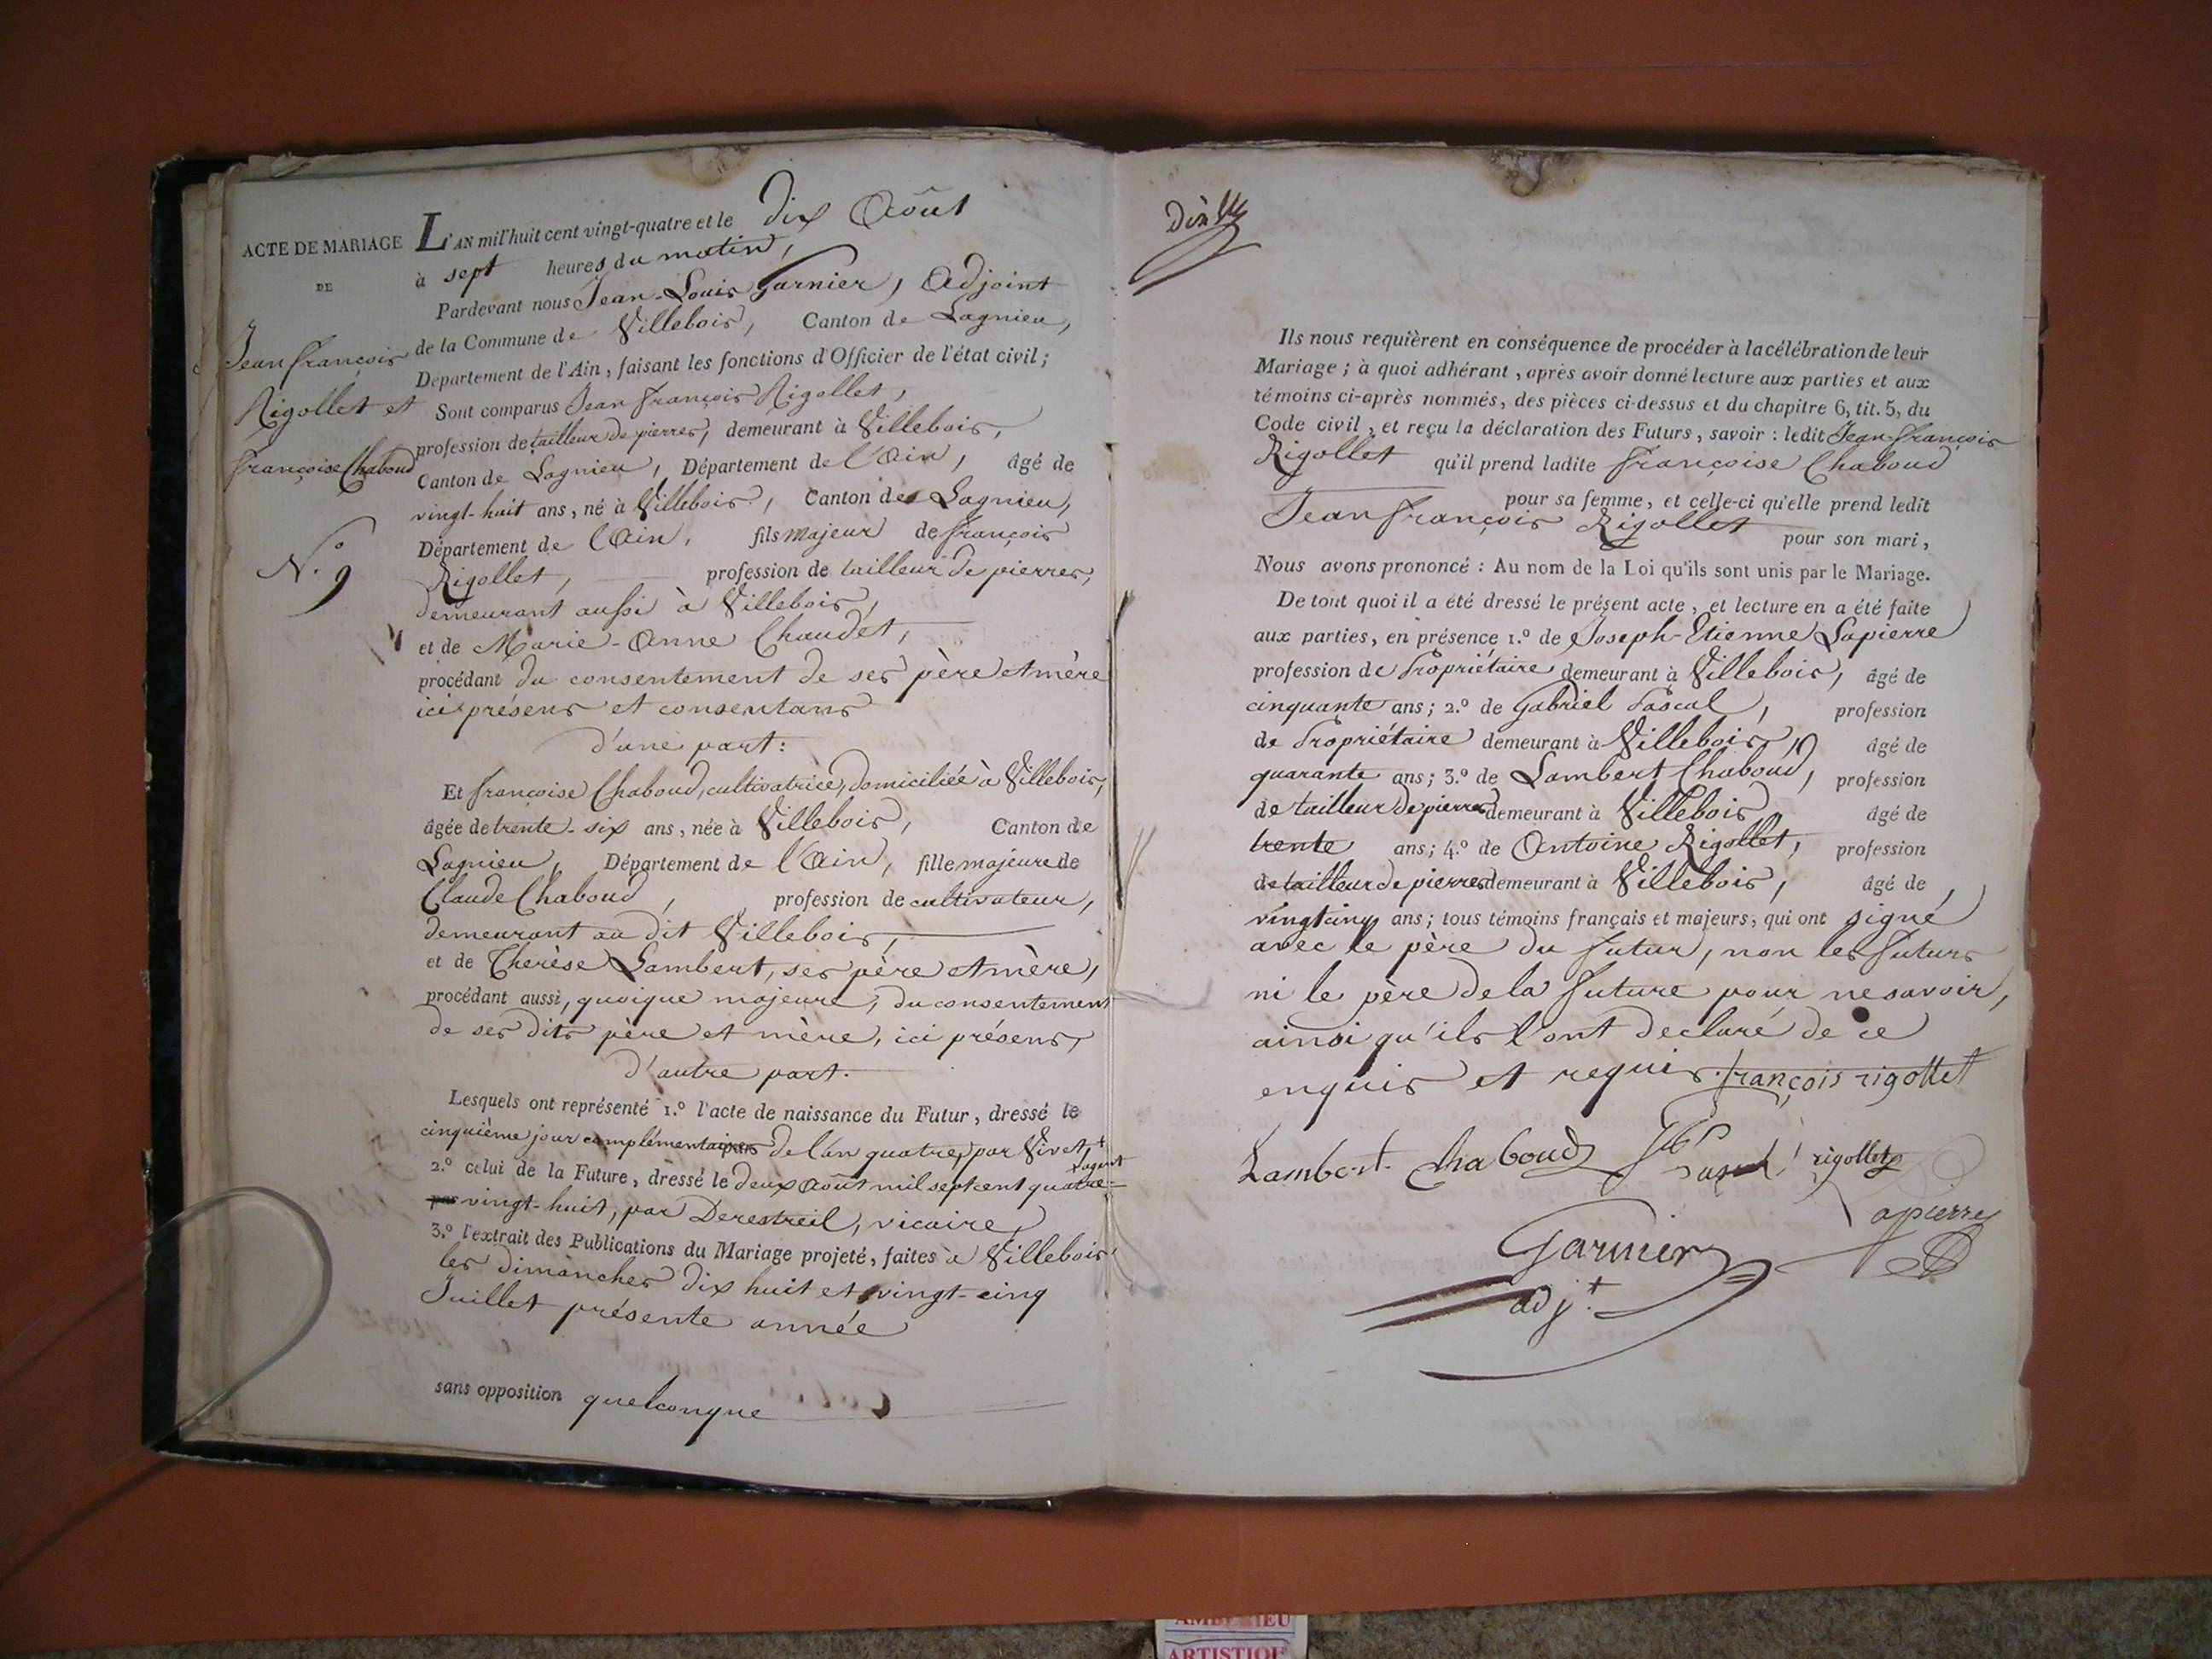 ACTE DE MARIAGE
DE
Jean françois
Rigollet et
françoise Chaboud
N.º 9
L'AN mil huit cent vingt-quatre et le dix Août
à sept heures du matin,
Pardevant nous Jean-Louis Garnier, Adjoint
de la Commune de Villebois, Canton de Lagnieu,
Département de l'Ain, faisant les fonctions d'Officier de l'état civil;
Sont comparus Jean françois Rigollet,
profession de tailleur de pierres, demeurant à Villebois,
Canton de Lagnieu, Département de l'Ain, âgé de
vingt-huit ans, né à Villebois, Canton de Lagnieu,
Département de l'Ain, fils majeur de françois
Rigollet, profession de tailleur de pierres,
demeurant aussi à Villebois,
et de Marie-Anne Chaudet,
procédant du consentement de ses père et mère
ici présens et consentans
d'une part:
Et françoise Chaboud, cultivatrice, domiciliée à Villebois,
âgée de trente-six ans, née à Villebois, Canton de
Lagnieu, Département de l'Ain, fille majeure de
Claude Chaboud, profession de cultivateur,
demeurant au dit Villebois,
et de Therèse Lambert, ses père et mère,
procédant aussi, quoique majeure, du consentement
de ses dits père et mère, ici présens,
d'autre part.
Lesquels ont représenté 1.º l'acte de naissance du Futur, dressé le
cinquième jour complémentaires de l'an quatre, par Vivet,
l'agent
2.º celui de la Future, dressé le deux Août mil sept cent quatre=
par vingt-huit, par Derestreil, vicaire,
3.º l'extrait des Publications du Mariage projeté, faites à Villebois
les dimanches dix huit et vingt-cinq
Juillet présente année
sans opposition quelconque
Dix
Ils nous requièrent en conséquence de procéder à la célébration de leur
Mariage; à quoi adhérant, après avoir donné lecture aux parties et aux
témoins ci-après nommés, des pièces ci-dessus et du chapitre 6, tit. 5, du
Code civil, et reçu la déclaration des Futurs, savoir: ledit Jean-françois
Rigollet qu'il prend ladite françoise Chaboud
pour sa femme, et celle-ci qu'elle prend ledit
Jean françois Rigollet pour son mari,
Nous avons prononcé: Au nom de la Loi qu'ils sont unis par le Mariage.
De tout quoi il a été dressé le présent acte, et lecture en a été faite
aux parties, en présence 1.º de Joseph-Etienne Lapierre
profession de Propriétaire demeurant à Villebois, âgé de
cinquante ans; 2.º de Gabriel Pascal, profession
de Propriétaire demeurant à Villebois, âgé de
quarante ans; 3.º de Lambert Chaboud, profession
de tailleur de pierres demeurant à Villebois âgé de
trente ans; 4.º de Antoine Rigollet, profession
de tailleur de pierres demeurant à Villebois, âgé de
vingt cinq ans; tous témoins français et majeurs, qui ont signé
avec le père du futur, non les futurs
ni le père de la future pour ne savoir,
ainsi qu'ils l'ont declaré de ce
enquis et requis. françois rigollet
Lambert chaboud rigollet
Lapierre
Garnier
adj.t
ARTISTIQUE